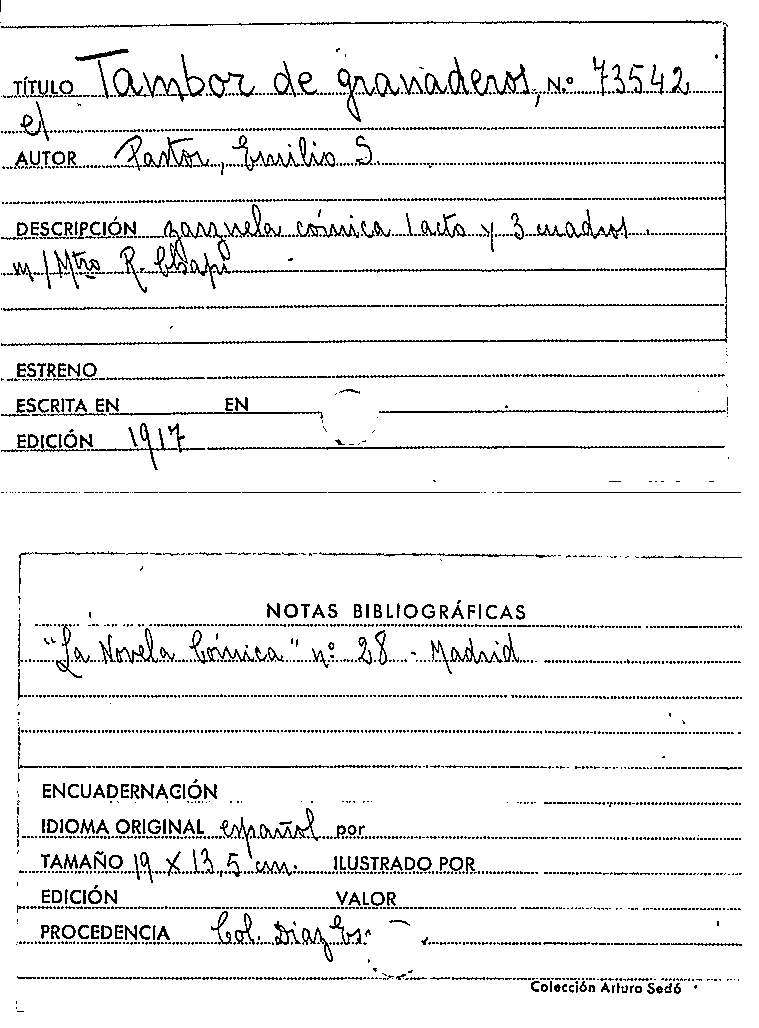 TÍTULO Tambor de granaderos, N.º 73542
el
AUTOR Pastor, Emilio S.
DESCRIPCIÓN zarzuela cómica 1 acto y 3 cuadros.
m/Mtro R. Chapí
ESTRENO
ESCRITA EN EN
EDICIÓN 1917
NOTAS BIBLIOGRÁFICAS
"La Novela Cómica" nº 28 - Madrid
ENCUADERNACIÓN
IDIOMA ORIGINAL español por
TAMAÑO 19 X 13,5 cm. ILUSTRADO POR
EDICIÓN VALOR
PROCEDENCIA Col. Diaz Es.
Colección Arturo Sedó